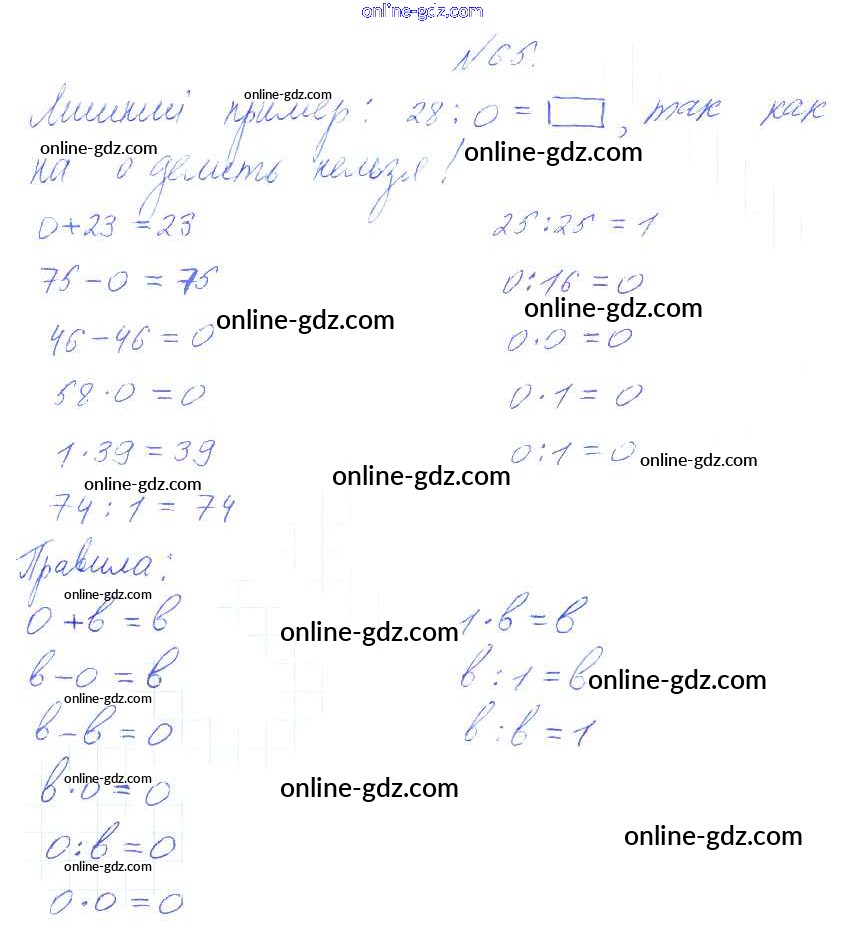 online-gdz.com
№65.
online-gdz.com
Лишний пример: 28 : 0 = , так как
online-gdz.com online-gdz.com
на 0 делить нельзя!
0+23 = 23
75-0 = 75
online-gdz.com
46-46 = 0
58·0 = 0
1·39 = 39
online-gdz.com
74 : 1 = 74
25:25 = 1
0:16 = 0
online-gdz.com
0·0 = 0
0·1 = 0
0:1 = 0 online-gdz.com
online-gdz.com
Правила:
online-gdz.com
0+в = в
в-0 = в
online-gdz.com
в-в = 0
online-gdz.com
в·0 = 0
0:в = 0
online-gdz.com
0·0 = 0
online-gdz.com
1·в = в
в:1 = в online-gdz.com
в:в = 1
online-gdz.com
online-gdz.com